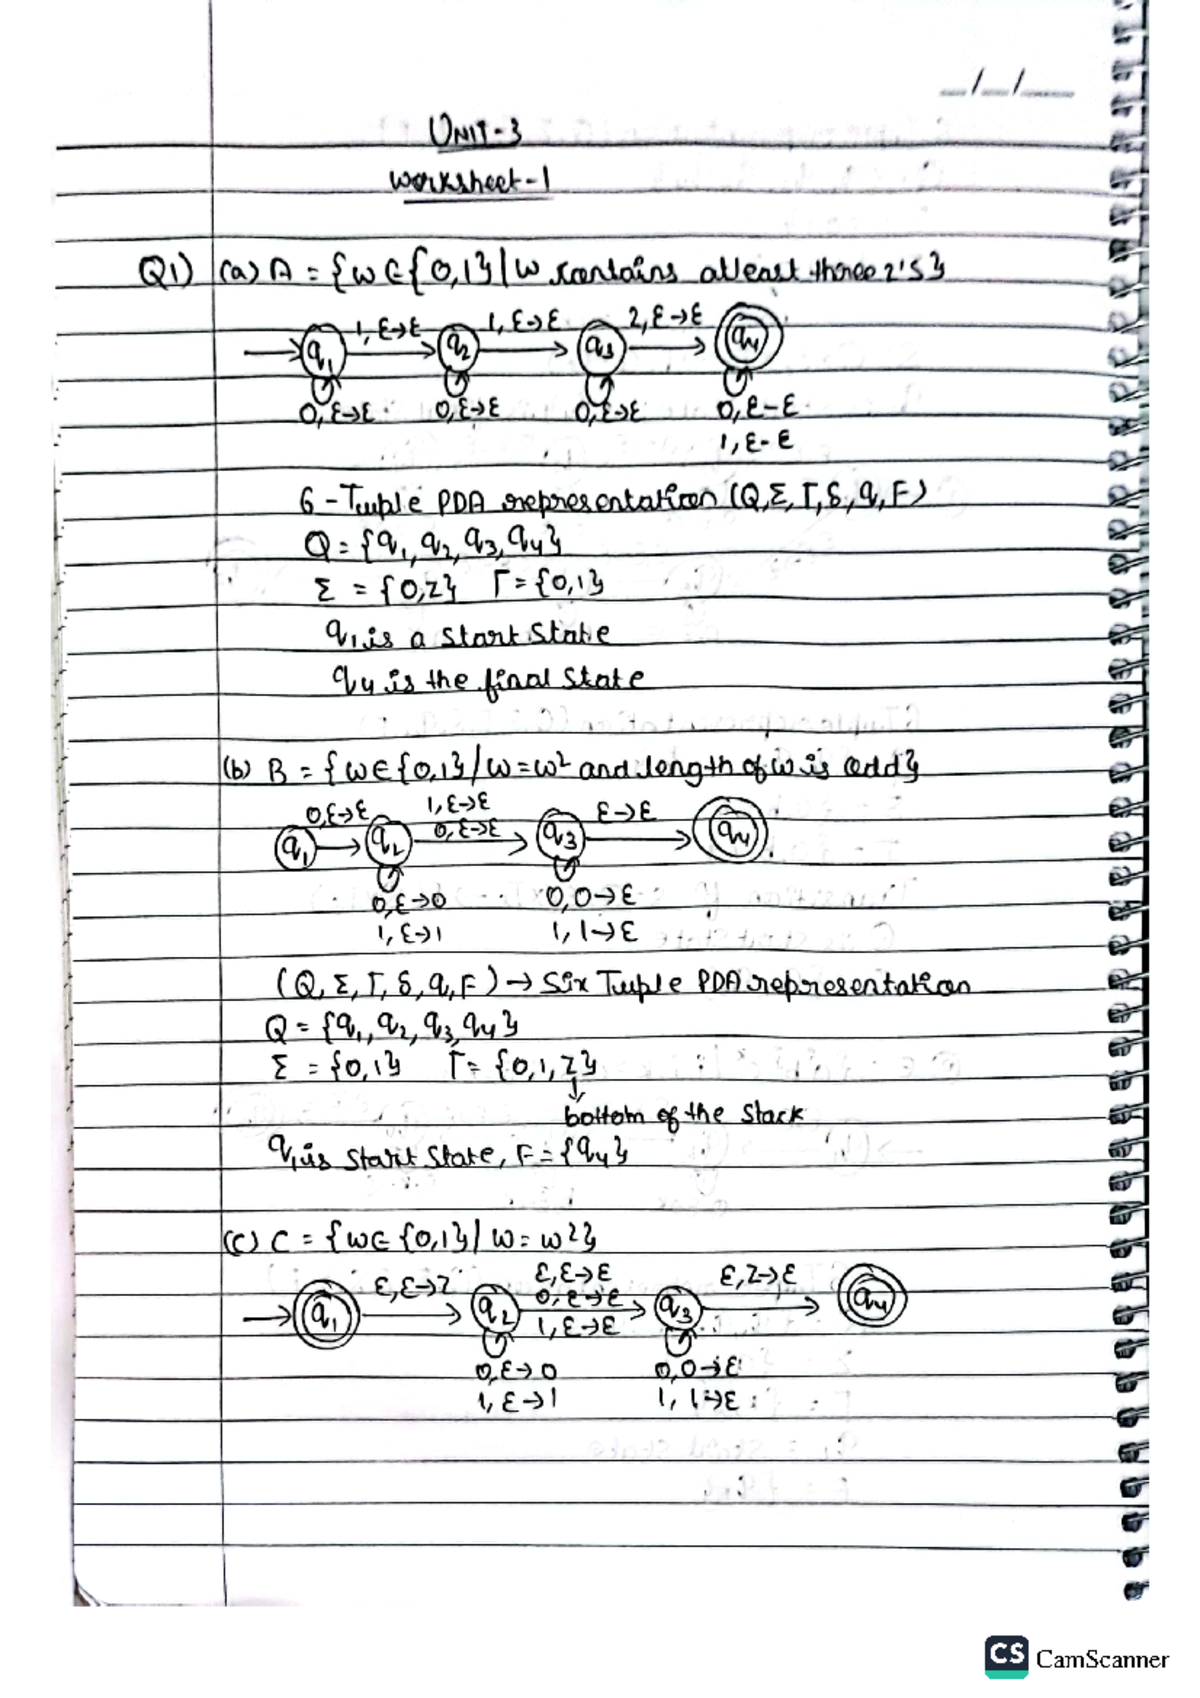 _/_/_
UNIT-3
Worksheet-1
Q1) (a) A = {w ∈ {0,1} | w contains atleast three 2's}
1, ε→ε 1, ε→ε 2, ε→ε
q1 q2 q3 q4
0, ε→ε 0, ε→ε 0, ε→ε 0, ε-ε
1, ε-ε
6-Tuple PDA representation (Q, Σ, Γ, δ, q, F)
Q = {q1, q2, q3, q4}
Σ = {0,2} Γ = {0,1}
q1 is a Start State
q4 is the final State
(b) B = {w ∈ {0,1} / w = w² and length of w is odd}
0, ε→ε 1, ε→ε ε→ε
0, ε→ε
q1 q2 q3 q4
0, ε→0 0, 0→ε
1, ε→1 1, 1→ε
(Q, Σ, Γ, δ, q, F) → Six Tuple PDA representation
Q = {q1, q2, q3, q4}
Σ = {0,1} Γ = {0,1,Z}
↓
bottom of the Stack
q1 is Start State, F = {q4}
(c) C = {w ∈ {0,1} / w = w²}
ε, ε→Z ε, ε→ε ε, Z→ε
0, ε→ε
1, ε→ε
q1 q2 q3 q4
0, ε→0 0, 0→ε
1, ε→1 1, 1→ε
CS CamScanner